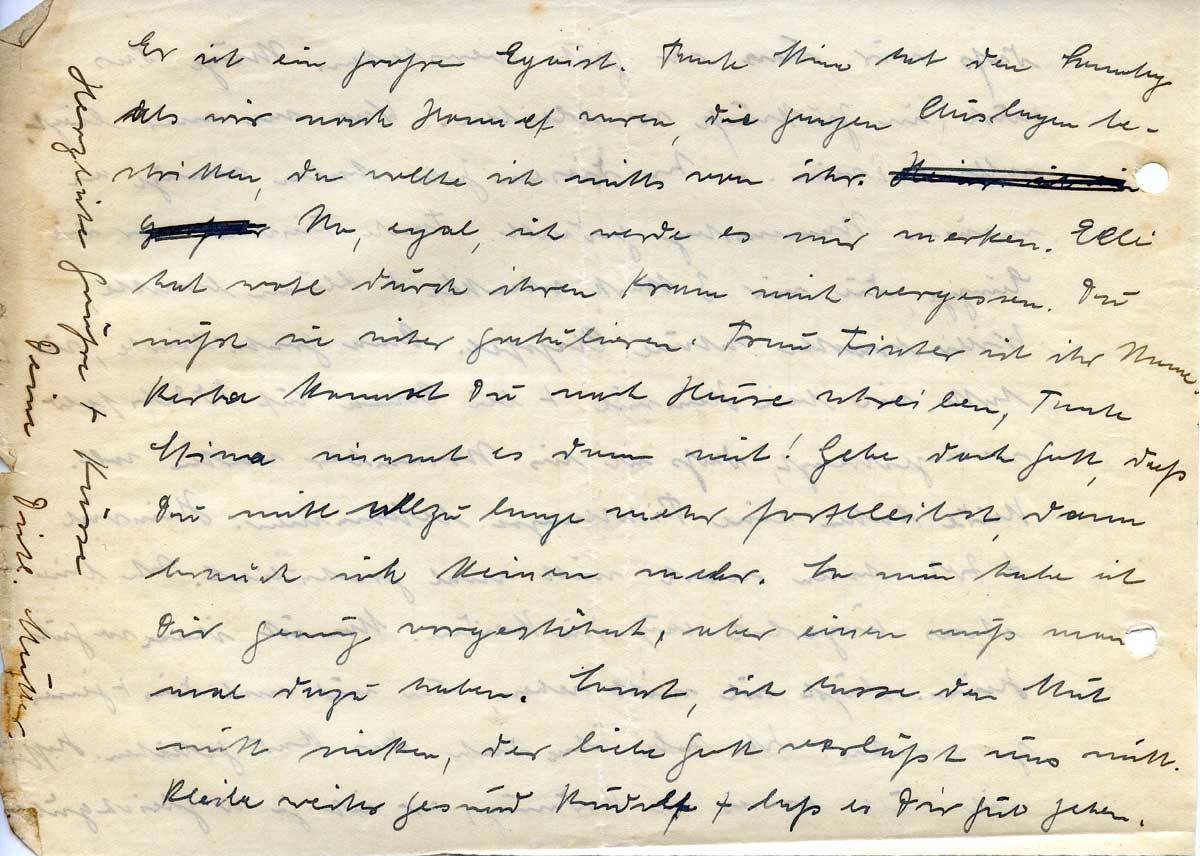 Er ist ein großer Egoist. Tante Mina hat den Sonntag
als wir nach Honnef waren, die ganzen Auslagen be-
stritten, da wollte ich nichts von ihr.
Na, egal, ich werde es mir merken. Elli
hat wohl durch ihren Kram mich vergessen. Du
mußt ihr gratulieren. Frau Finter ist ihr Name.
kannst Du nach Hause schreiben, Tante
Mina nimmt es dann mit! Gebe doch Gott, daß
Du nicht allzu lange mehr fortbleibst, dann
brauch ich keinen mehr. So nun habe ich
Dir genug vorgestöhnt, aber einen muß man
mal dazu haben. Sonst, ich lasse den Mut
nicht sinken, der liebe Gott verläßt uns nicht.
Bleibe weiter gesund Rudolf + laß es Dir gut gehen.
Herzliche Grüße + Küsse
Deine Mutter